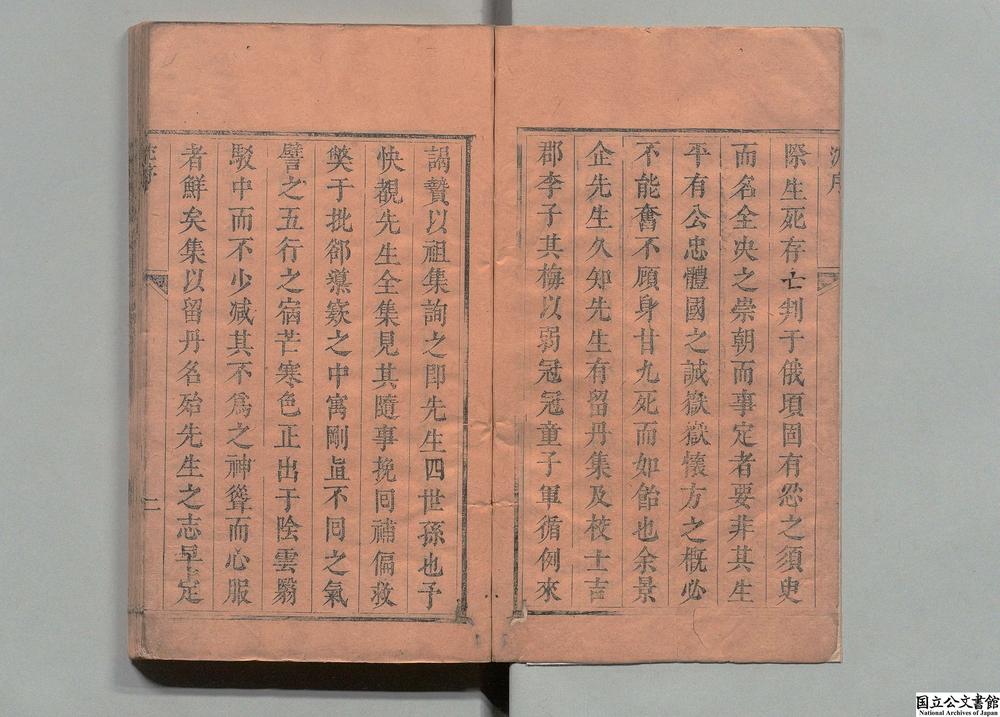 際生死存亡判于俄頃固有忍之須臾
而名全决之崇朝而事定者要非其生
平有公忠體國之誠嶽嶽懷方之概必
不能奮不顧身甘九死而如飴也余景
企先生久知先生有留丹集及校士吉
郡李子其梅以弱冠冠童子軍循例來
謁贄以祖集詢之即先生四世孫也予
快覩先生全集見其隨事挽回補偏救
獘于批郤導窾之中寓剛直不囘之氣
譬之五行之宿芒寒色正出于陰雲翳
駁中而不少减其不為之神聳而心服
者鮮矣集以留丹名殆先生之志早定
二
国立公文書館
National Archives of Japan